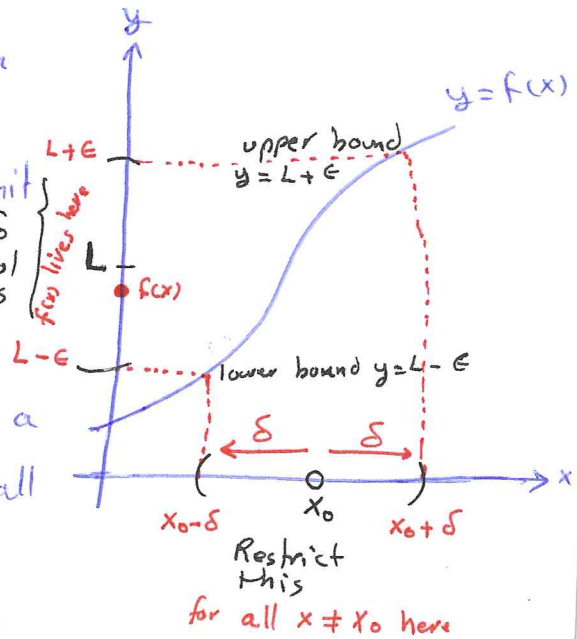 y
y = f(x)
L+ϵ
upper bound
y = L + ϵ
f(x) lives here
L
f(x)
L-ϵ
lower bound y=L- ϵ
a
δ δ
all
x
x₀-δ
x₀
x₀+δ
Restrict
this
for all x ≠ x₀ here